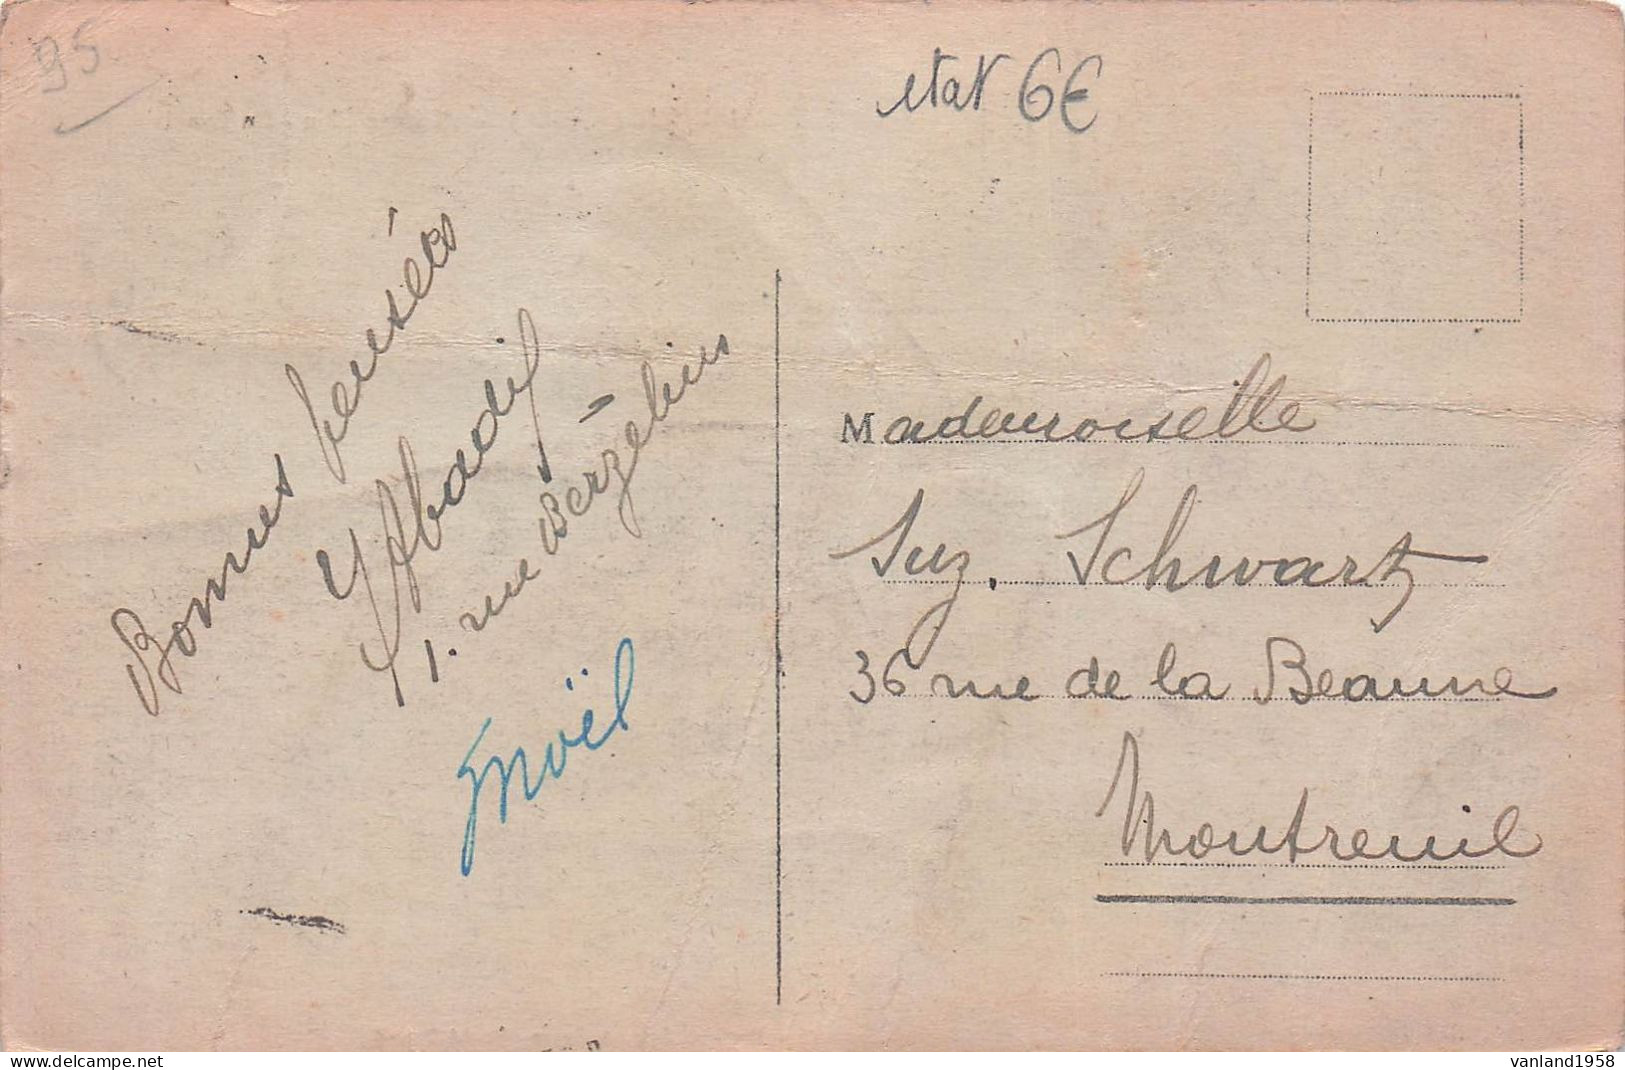 95
etat 6€
Bonnes pensées
YAbadil
1. rue Berzélius
noël
Mademoiselle
Suz. Schwartz
36 rue de la Beaune
Montreuil
vanland1958